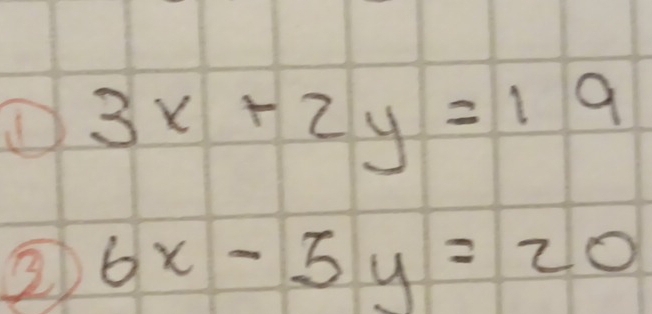 ① 3x + 2y = 19
② 6x - 5y = 20